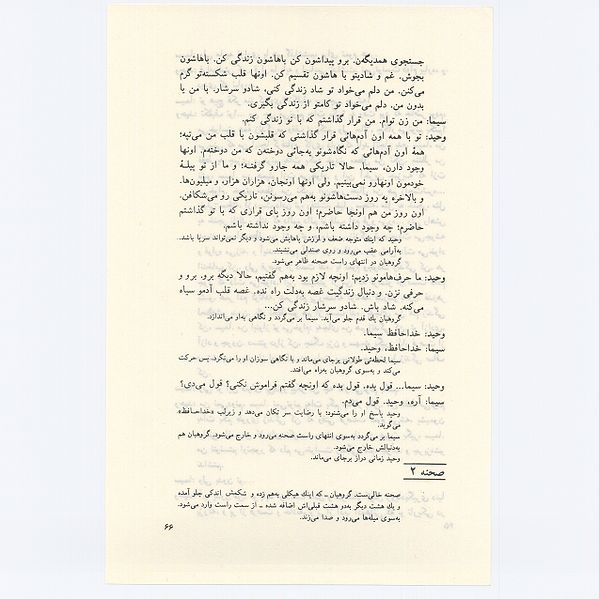 جستجوی همدیگه‌ن. برو پیداشون کن باهاشون زندگی کن. باهاشون
بجوش. غم و شادیتو با هاشون تقسیم کن. اونها قلب شکسته‌تو گرم
می‌کنن. من دلم می‌خواد تو شاد زندگی کنی، شادو سرشار. با من یا
بدون من. دلم می‌خواد تو کامتو از زندگی بگیری.
سیما: من زن توام. من قرار گذاشتم که با تو زندگی کنم.
وحید: تو با همه اون آدم‌هائی قرار گذاشتی که قلبشون با قلب من می‌تپه؛
همهٔ اون آدم‌هائی که نگاه‌شونو به‌جائی دوخته‌ن که من دوخته‌م. اونها
وجود دارن، سیما. حالا تاریکی همه جارو گرفته؛ و ما از تو پیلهٔ
خودمون اونهارو نمی‌بینیم. ولی اونها اونجان، هزاران هزار، و میلیون‌ها.
و بالاخره یه روز دست‌هاشونو به‌هم می‌رسونن، تاریکی رو می‌شکافن.
اون روز من هم اونجا حاضرم؛ اون روز پای قراری که با تو گذاشتم
حاضرم؛ چه وجود داشته باشم، و چه وجود نداشته باشم.
وحید که اینك متوجه ضعف و لرزش پاهایش می‌شود و دیگر نمی‌تواند سرپا باشد،
به‌آرامی عقب می‌رود و روی صندلی می‌نشیند.
گروهبان در انتهای راست صحنه ظاهر می‌شود.
وحید: ما حرف‌هامونو زدیم؛ اونچه لازم بود به‌هم گفتیم، حالا دیگه برو. برو و
حرفی نزن. و دنبال زندگیت غصه به‌دلت راه نده. غصه قلب آدمو سیاه
می‌کنه. شاد باش. شادو سرشار زندگی کن...
گروهبان یك قدم جلو می‌آید. سیما بر می‌گردد و نگاهی به‌او می‌اندازد.
وحید: خداحافظ سیما.
سیما: خداحافظ، وحید.
سیما لحظه‌ئی طولانی برجای می‌ماند و با نگاهی سوزان او را می‌نگرد. پس حرکت
می‌کند و به‌سوی گروهبان به‌راه می‌افتد.
وحید: سیما... قول بده. قول بده که اونچه گفتم فراموش نکنی؟ قول می‌دی؟
سیما: آره، وحید. قول می‌دم.
وحید پاسخ او را می‌شنود؛ با رضایت سر تکان می‌دهد و زیرلب «خداحافظ»
می‌گوید.
سیما بر می‌گردد به‌سوی انتهای راست صحنه می‌رود و خارج می‌شود. گروهبان هم
به‌دنبالش خارج می‌شود.
وحید زمانی دراز برجای می‌ماند.
صحنه ۲
صحنه خالی‌ست. گروهبان ـ که اینك هیکلی به‌هم زده و شکمش اندکی جلو آمده
و یك هشت دیگر به‌دو هشت قبلی‌اش اضافه شده ـ از سمت راست وارد می‌شود.
به‌سوی میله‌ها می‌رود و صدا می‌زند.
۶۶